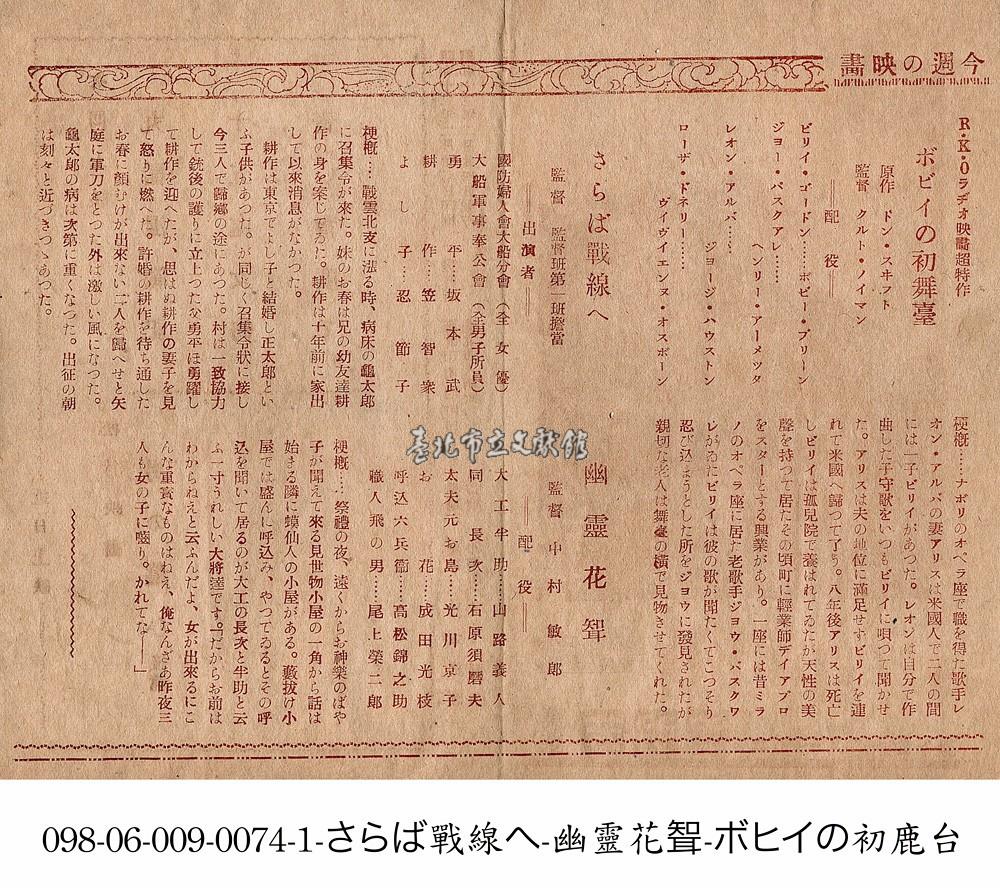 今週の映畫
R・K・Oラヂオ映畫超特作
ボビイの初舞臺
原作 ドン・スヰフト
監督 クルト・ノイマン
──配役──
ビリイ・ゴードン……ボビー・ブリーン
ヘンリー・アーメッタ
ジヨー・パスクアレ……
レオン・アルバ……
ジヨージ・ハウストン
ローザ・ドネリー……
ヴイヴイエンヌ・オスボーン
梗概……ナポリのオペラ座で職を得た歌手レ
オン・アルバの妻アリスは米國人で二人の間
には一子ビリイがあつた。レオンは自分で作
曲した子守歌をいつもビリイに唄つて聞かせ
た。アリスは夫の地位に滿足せずビリイを連
れて米國へ歸つて了う。八年後アリスは死亡
しビリイは孤兒院で養はれてゐたが天性の美
聲を持つて居たその頃町に輕業師デイアブロ
をスターとする興業があり。一座には昔ミラ
ノのオペラ座に居た老歌手ジヨウ・パスクワ
レがゐたビリイは彼の歌が聞たくてこつそり
忍び込まうとした所をジヨウに發見されたが
親切な老人は舞臺の横で見物させてくれた。
さらば戰線へ
監督 監督班第一班擔當
──出演者──
國防婦人會大船分會(全女優)
大船軍事奉公會(全男子所員)
勇平…坂本武
耕作…笠智衆
よし子…忍節子
梗概…戰雲北支に漲る時、病床の龜太郎
に召集令が來た。妹のお春は兄の幼友達耕
作の身を案じてゐた。耕作は十年前に家出
して以來消息がなかつた。
耕作は東京でよし子と結婚し正太郎とい
ふ子供があつた。が同じく召集令狀に接し
今三人で歸鄕の途にあつた。村は一致協力
して銃後の護りに立上つたな勇平ほ勇躍し
て耕作を迎へたが、思はぬ耕作の妻子を見
て怒りに燃へた。許婚の耕作を待ち通した
お春に顏むけが出來ない二人を歸へせと矢
庭に軍刀をとつた外は激しい風になつた。
龜太郎の病は次第に重くなつた。出征の朝
は刻々と近づきつゝあつた。
幽靈花聟
監督 中村敏郎
──配役──
大工半助…山路義人
同長次…石原須磨夫
太夫元お島…光川京子
お花…成田光枝
呼込六兵衞…高松錦之助
職人飛の男…尾上榮二郎
梗概…祭禮の夜、遠くからお神樂のばや
子が聞えて來る見世物小屋の一角から話は
始まる隣に蟆仙人の小屋がある。藪拔け小
屋では盛んに呼込み、やつてゐるとその呼
込を聞いて居るのが大工の長次と半助と云
ふ一寸うれしい大將達です。「だからお前は
わからねえと云ふんだよ、女が出來るにこ
んな重寳なものはねえ、俺なんざあ昨夜三
人も女の子に噛り。かれてな──」
臺北市立文獻館
098-06-009-0074-1-さらば戰線へ-幽靈花聟-ボヒイの初鹿台